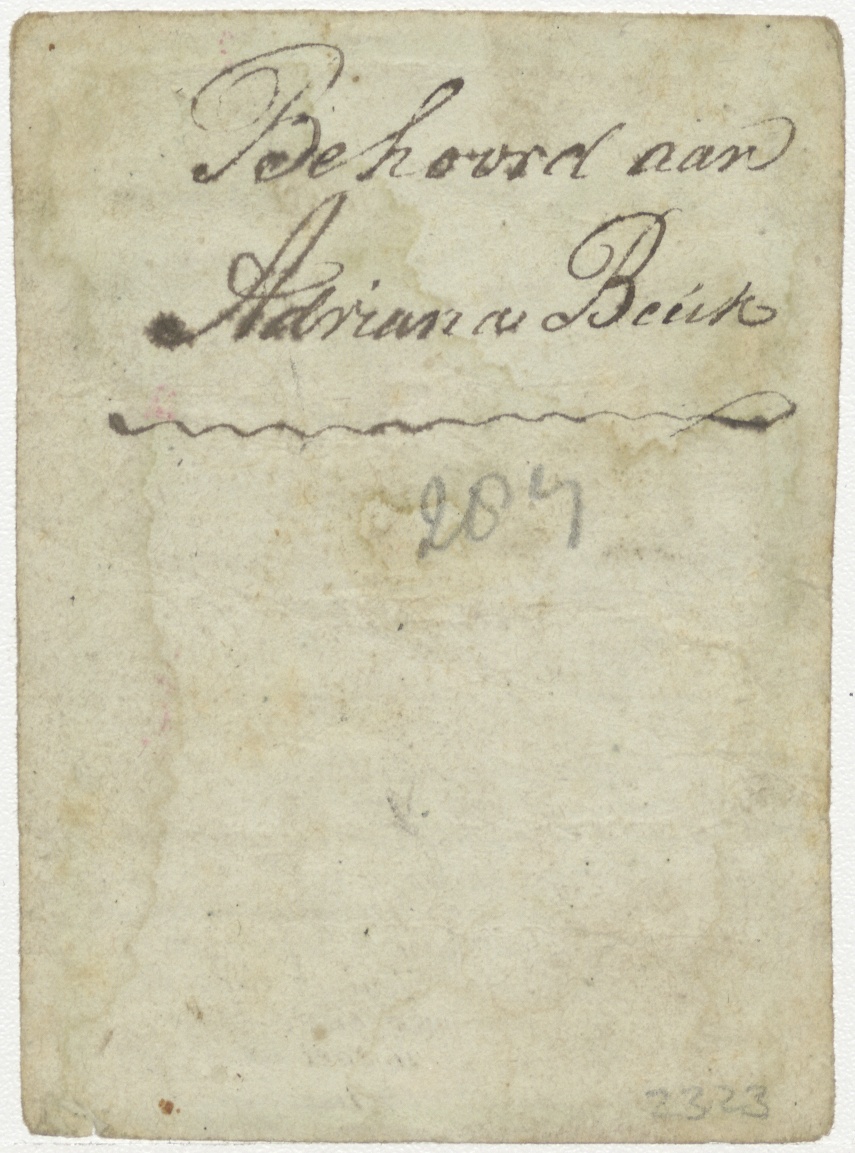 Behoord aan
Adriana Beuk
207
2323